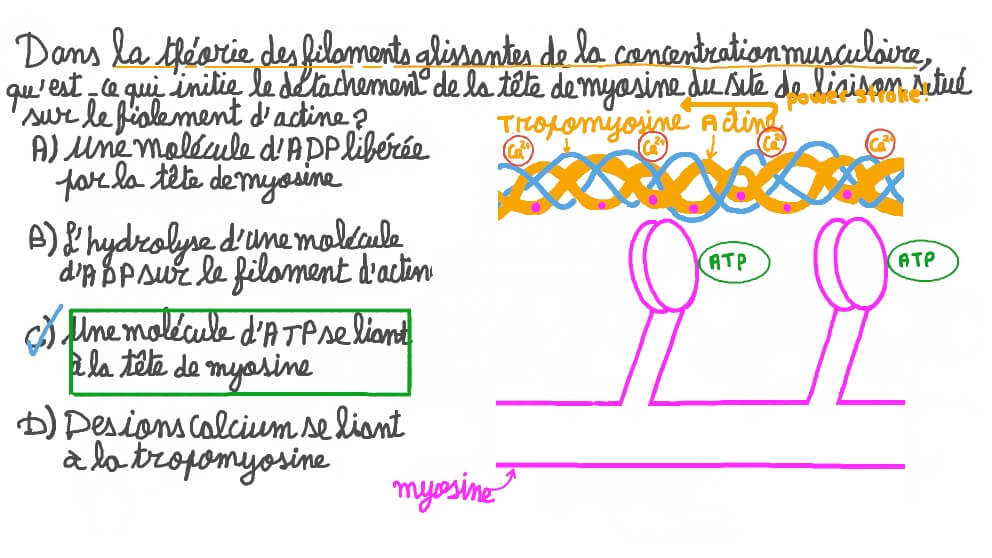 Dans la théorie des filaments glissantes de la concentration musculaire,
qu'est-ce qui initie le détachement de la tête de myosine du site de liaison situé
sur le fialement d'actine?
power stroke!
Tropomyosine Actine
Ca2+ Ca2+ Ca2+ Ca2+
A) Une molécule d'ADP libérée
par la tête de myosine
B) L'hydrolyse d'une molécule
d'ADP sur le filament d'actin
ATP ATP
C) Une molécule d'ATP se liant
à la tête de myosine
D) Des ions calcium se liant
à la tropomyosine
myosine